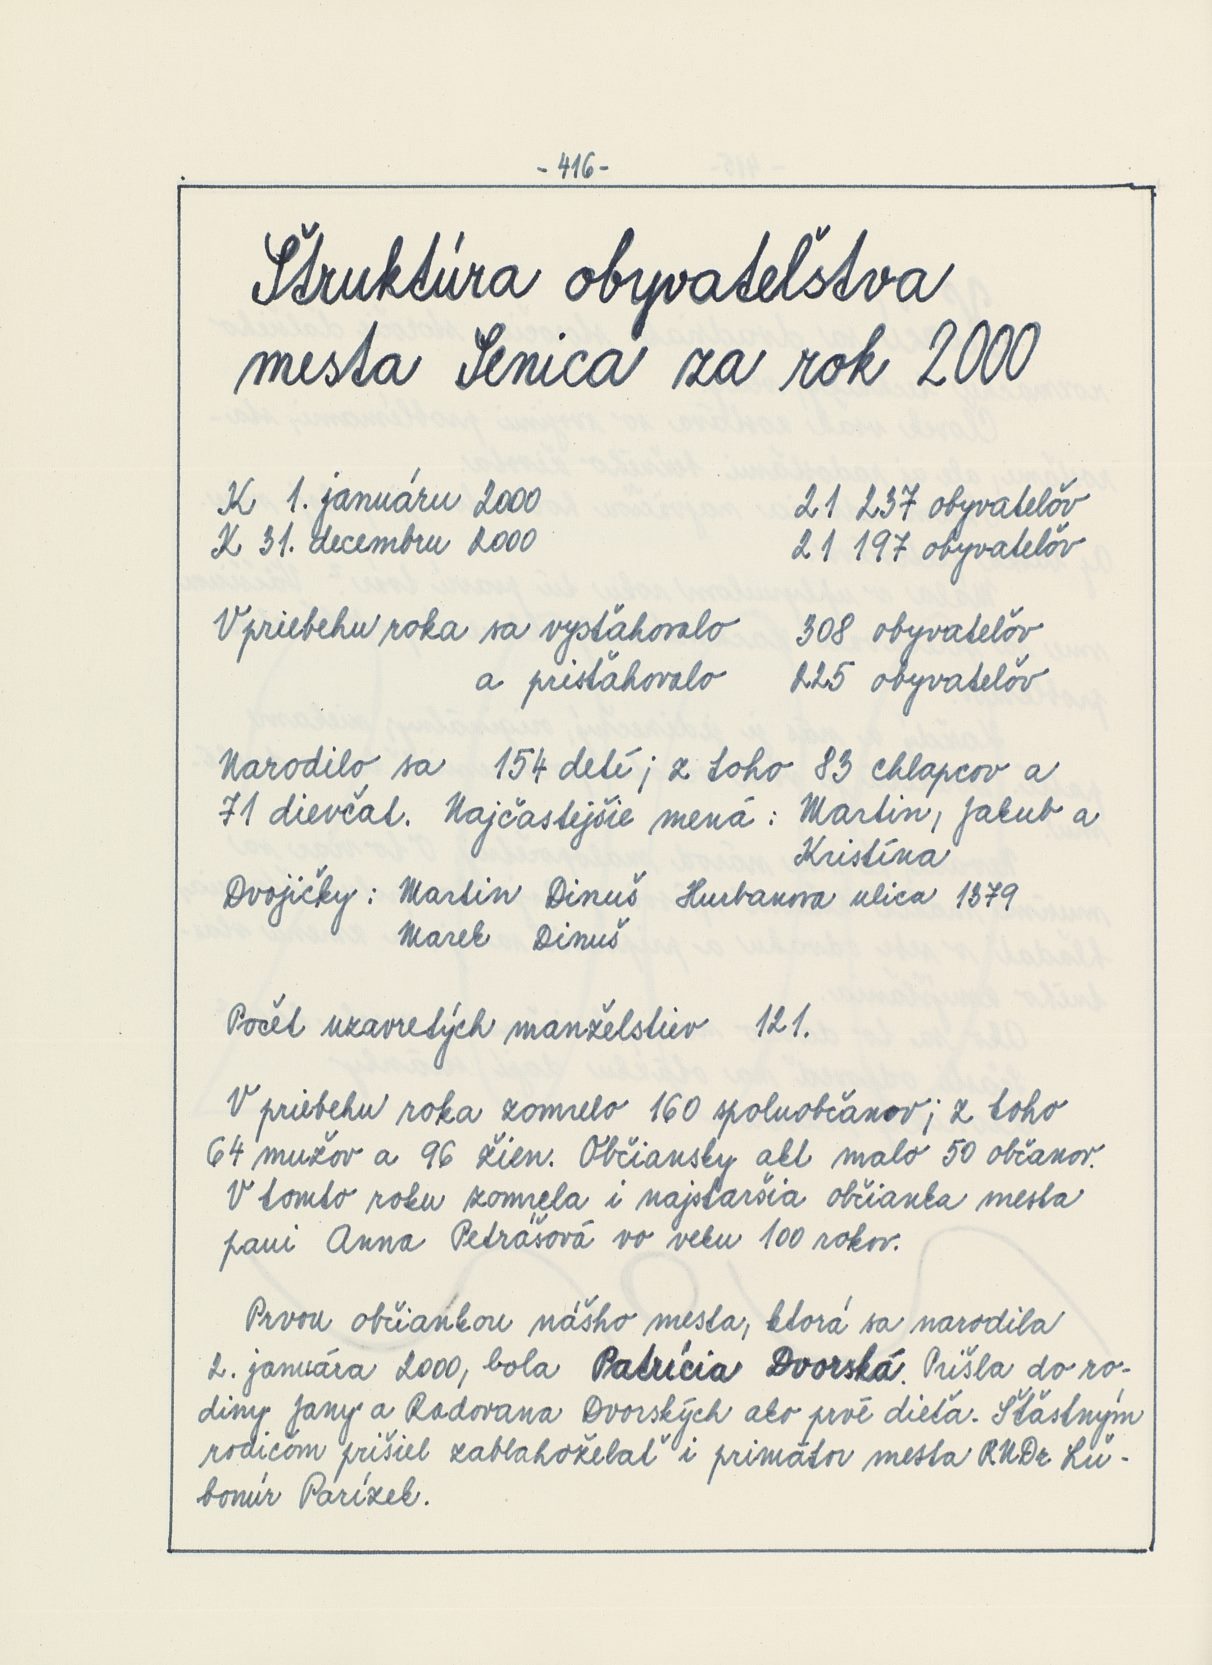 - 416 -
Štruktúra obyvateľstva
mesta Senica za rok 2000
K 1. januáru 2000 21 237 obyvateľov
K 31. decembru 2000 21 197 obyvateľov
V priebehu roka sa vysťahovalo 308 obyvateľov
a prisťahovalo 225 obyvateľov
Narodilo sa 154 detí; z toho 83 chlapcov a
71 dievčat. Najčastejšie mená: Martin, Jakub a
Kristína
Dvojičky: Martin Dinuš Hurbanova ulica 1379
Marek Dinuš
Počet uzavretých manželstiev 121.
V priebehu roka zomrelo 160 spoluobčanov; z toho
64 mužov a 96 žien. Občiansky akt malo 50 občanov.
V tomto roku zomrela i najstaršia občianka mesta
pani Anna Petrášová vo veku 100 rokov.
Prvou občiankou nášho mesta, ktorá sa narodila
2. januára 2000, bola Patrícia Dvorská. Prišla do ro-
diny Jany a Radovana Dvorských ako prvé dieťa. Šťastným
rodičom prišiel zablahoželať i primátor mesta RNDr Ľu-
bomír Parízek.